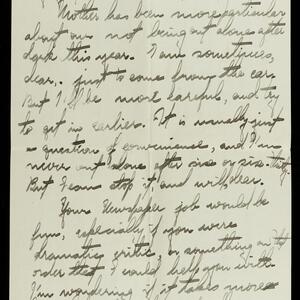 Mother has been more particular
about our not being out alone after
dark this year. I am sometimes,
dear, just to come from the car.
But I'll be more careful, and try
to get in earlier. It is usually just
a question of convenience, and I'm
never out alone after six or six-thirty
But I can stop it, and will, dear.
Your Newspaper job would be
fun, especially if you were
dramatic critic, or something on the
order that I could help you with.
I'm wondering if it takes more